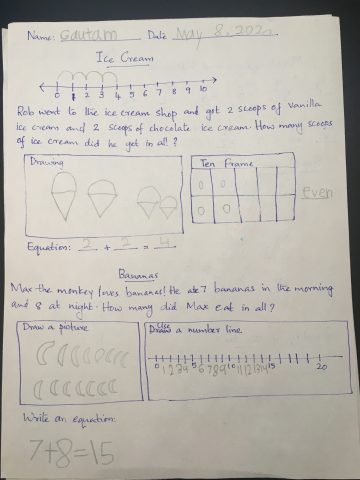 Name: Gautam Date May 8, 2020
Ice Cream
0 1 2 3 4 5 6 7 8 9 10
Rob went to the ice cream shop and got 2 scoops of vanilla
ice cream and 2 scoops of chocolate ice cream. How many scoops
of ice cream did he get in all?
Drawing
Ten Frame
even
Equation: 2 + 2 = 4
Bananas
Max the monkey loves bananas! He ate 7 bananas in the morning
and 8 at night. How many did Max eat in all?
Draw a picture
Use a number line
0 1 2 3 4 5 6 7 8 9 10 11 12 13 14 15 20
Write an equation:
7+8=15